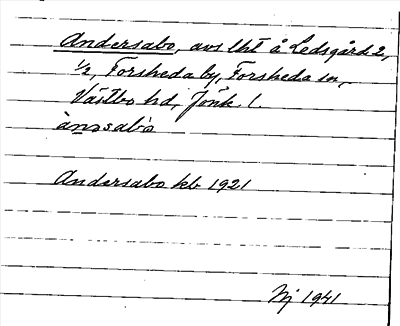 Andersabo, avs lht å Ledsgård 2,
1/2, Forsheda by, Forsheda sn,
Västbo hd, Jönk l.
ànǝsabò
Andersabo kb 1921
Nj 1941